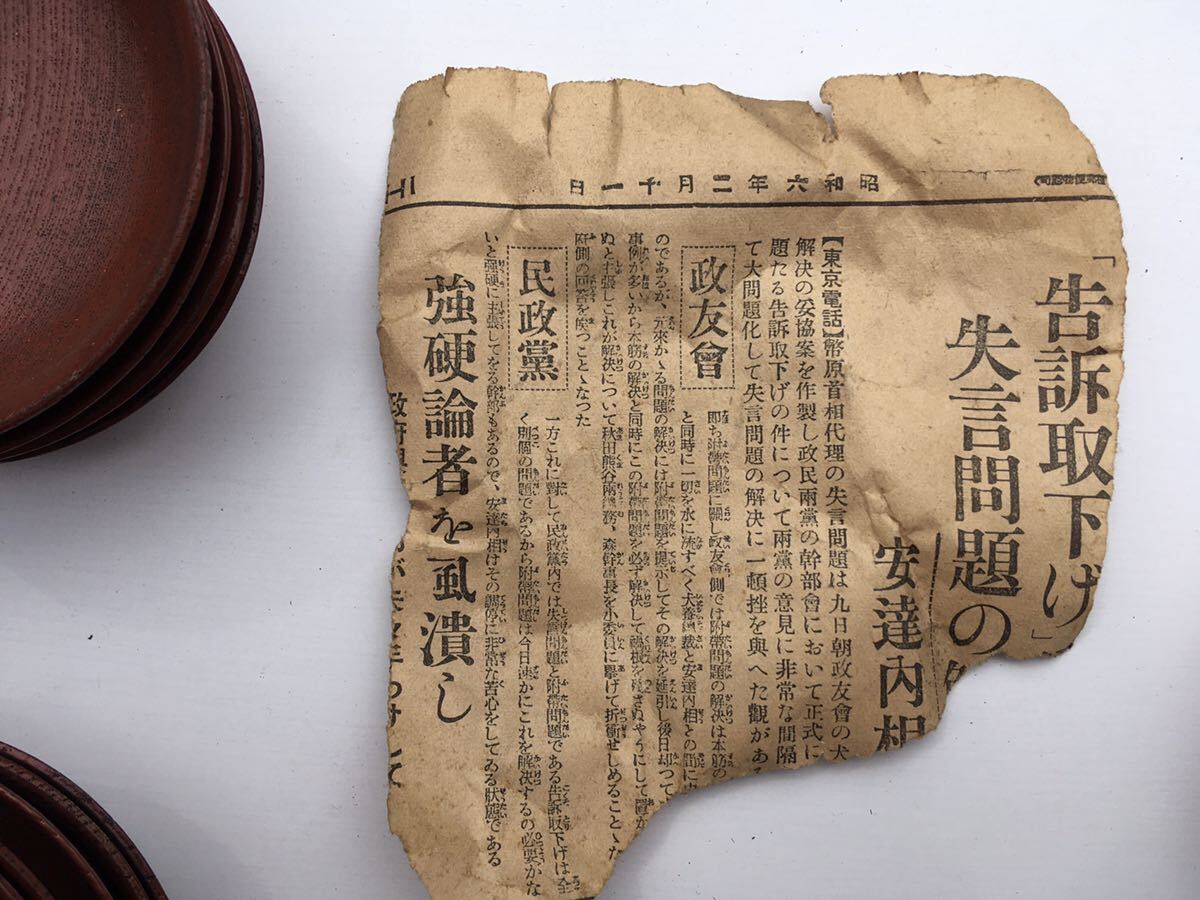 昭和六年二月十一日
「告訴取下げ」
失言問題の
安達内相
【東京電話】幣原首相代理の失言問題は九日朝政友會の犬
解決の妥協案を作製し政民兩黨の幹部會において正式に
題たる告訴取下げの件について兩黨の意見に非常な間隔
て大問題化して失言問題の解決に一頓挫を與へた觀がある
政友會
即ち附帶問題に關し政友會側では附帶問題の解決は本筋の
と同時に一切を水に流すべく犬養總裁と安達内相との間に
のであるが、元來かゝる問題の解決には附帶問題を提示してその解決を遷引し後日却つて
事例が多いから本筋の解決と同時にこの附帶問題を必ず解決して禍根を殘さぬやうにして置か
ぬと主張しこれが解決について秋田熊谷兩總務、森幹事長を小委員に擧げて折衝せしめることゝた
府側の回答を俟つことゝなつた
民政黨
一方これに對して民政黨内では失言問題と附帶問題である告訴取下げは全
く別個の問題であるから附帶問題は今日速かにこれを解決するの必要がな
いと強硬に主張してをる幹部もあるので、安達内相はその調停に非常な苦心をしてゐる狀態である
強硬論者を虱潰し
政府與